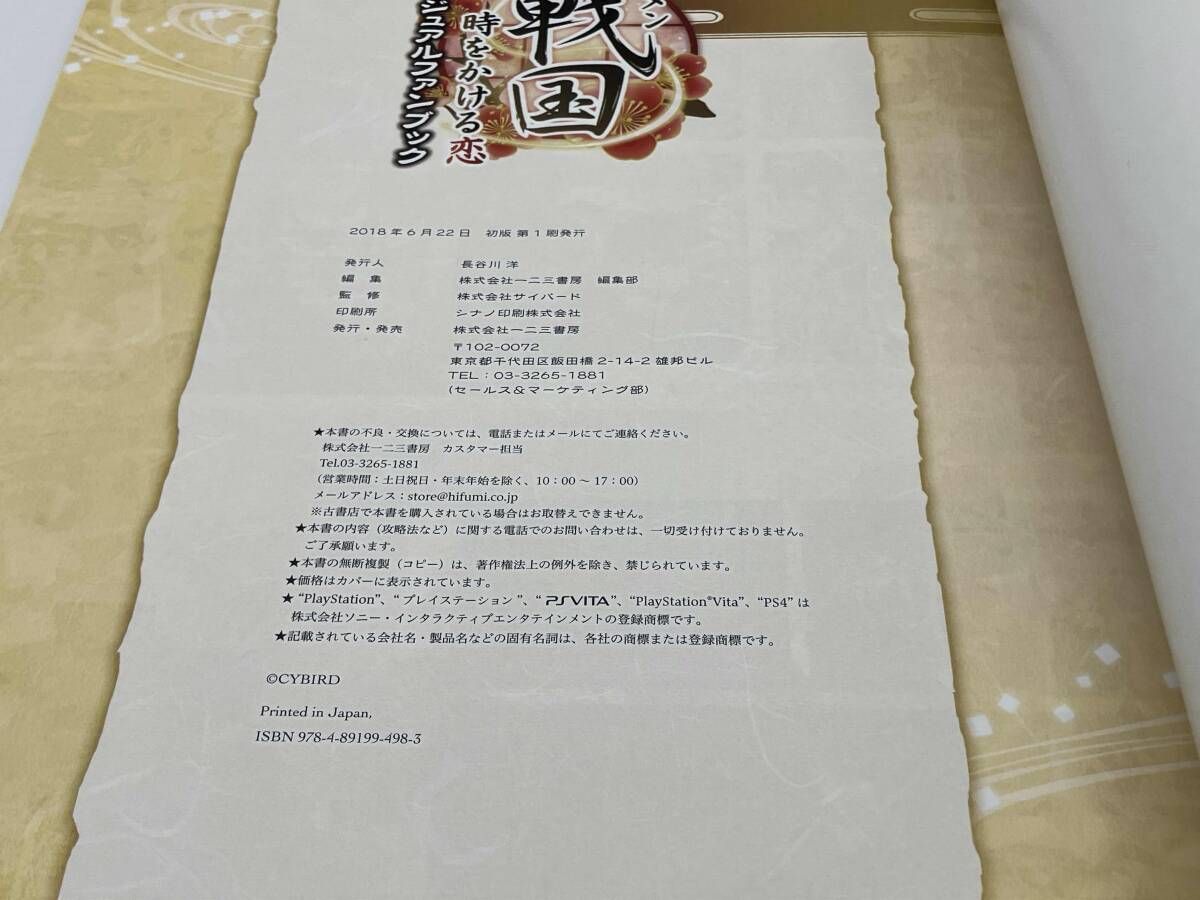 メン
戦国
時をかける恋
ジュアルファンブック
2018年6月22日 初版 第1刷発行
発行人 長谷川 洋
編集 株式会社一二三書房 編集部
監修 株式会社サイバード
印刷所 シナノ印刷株式会社
発行・発売 株式会社一二三書房
〒102-0072
東京都千代田区飯田橋2-14-2 雄邦ビル
TEL:03-3265-1881
(セールス&マーケティング部)
★本書の不良・交換については、電話またはメールにてご連絡ください。
株式会社一二三書房 カスタマー担当
Tel.03-3265-1881
(営業時間:土日祝日・年末年始を除く、10:00~17:00)
メールアドレス:store@hifumi.co.jp
※古書店で本書を購入されている場合はお取替えできません。
★本書の内容(攻略法など)に関する電話でのお問い合わせは、一切受け付けておりません。
ご了承願います。
★本書の無断複製(コピー)は、著作権法上の例外を除き、禁じられています。
★価格はカバーに表示されています。
★“PlayStation”、“プレイステーション”、“PSVITA”、“PlayStation®Vita”、“PS4”は
株式会社ソニー・インタラクティブエンタテインメントの登録商標です。
★記載されている会社名・製品名などの固有名詞は、各社の商標または登録商標です。
©CYBIRD
Printed in Japan,
ISBN 978-4-89199-498-3